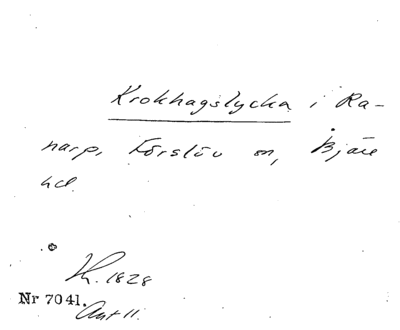 Krokhagslycka i Ra-
narp, Förslöv sn, Bjäre
hd.
1828
Nr 7041.
Akt 11.